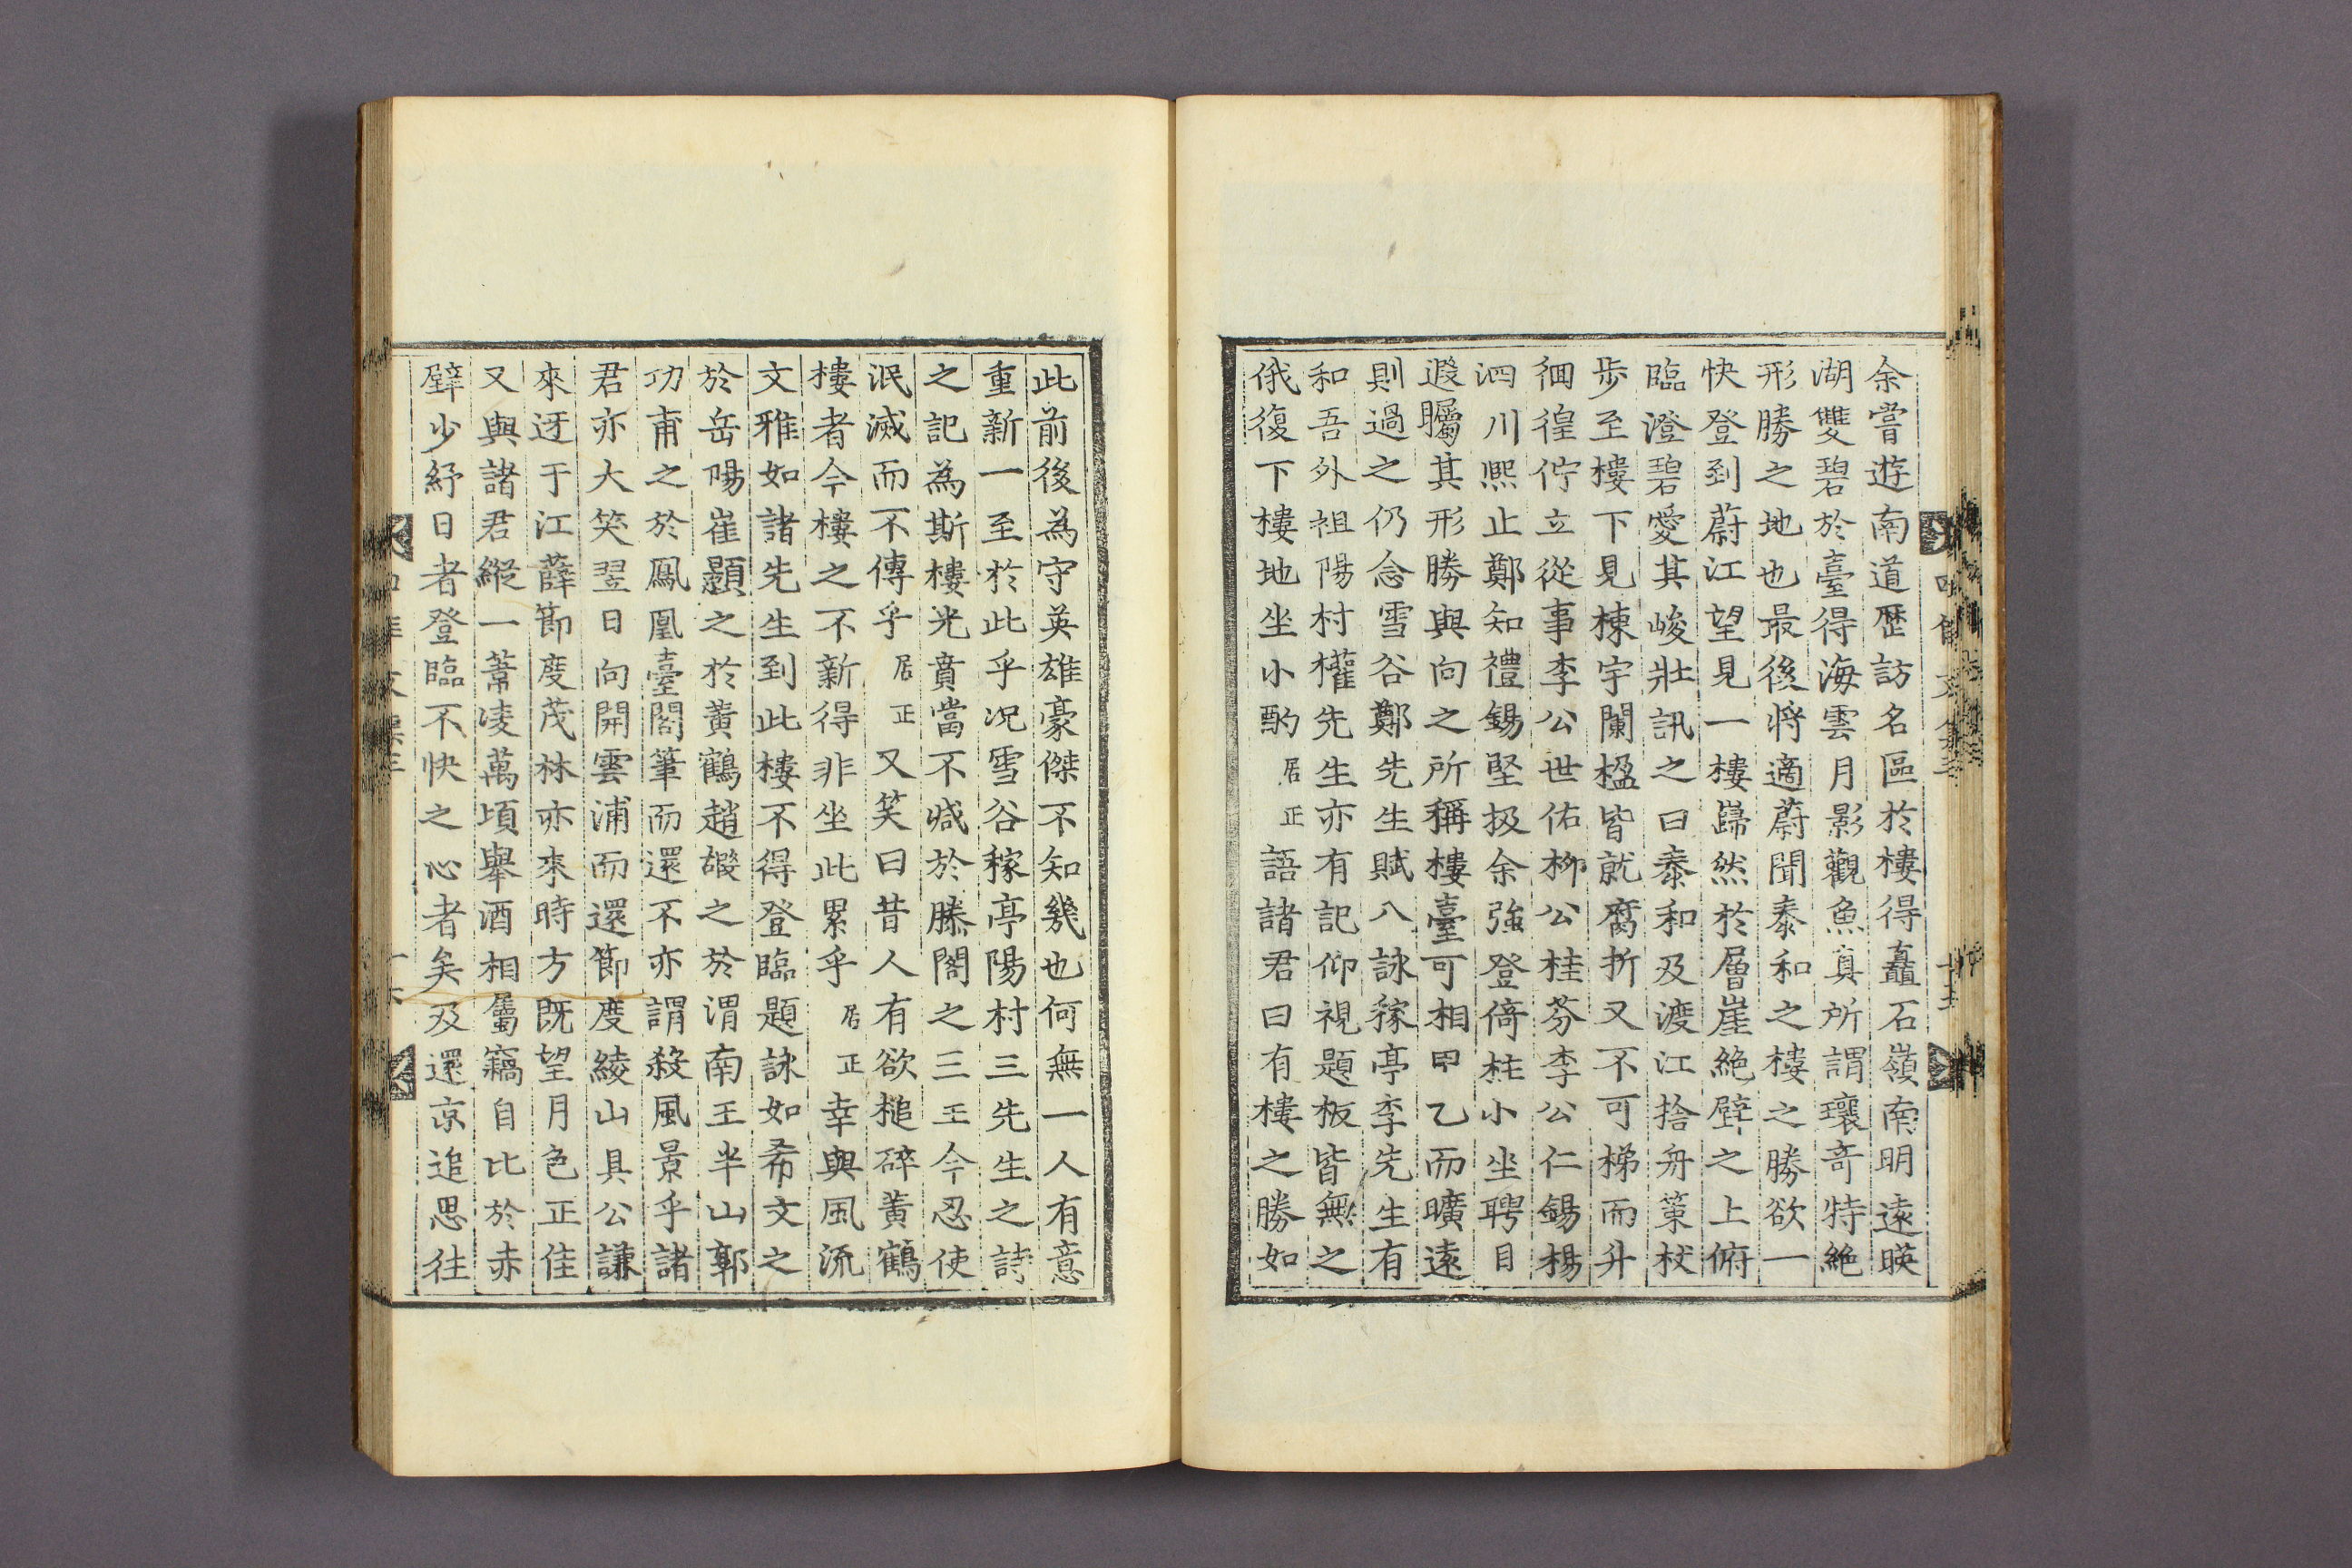 余嘗遊南道歷訪名區於樓得矗石嶺南明遠暎
湖雙碧於臺得海雲月影觀魚真所謂瓌奇特絶
形勝之地也最後將適蔚聞泰和之樓之勝欲一
快登到蔚江望見一樓巋然於層崖絶壁之上俯
臨澄碧愛其峻壯訊之曰泰和及渡江捨舟策杖
歩至樓下見棟宇闌楹皆就腐折又不可梯而升
徊徨佇立從事李公世佑柳公桂芬李公仁錫楊
泗川熙止鄭知禮錫堅扱余強登倚柱小坐聘目
遐矚其形勝與向之所稱樓臺可相甲乙而曠遠
則過之仍念雪谷鄭先生賦八詠稼亭李先生有
和吾外祖陽村權先生亦有記仰視題板皆無之
俄復下樓地坐小酌居正語諸君曰有樓之勝如
此前後為守英雄豪傑不知幾也何無一人有意
重新一至於此乎况雪谷稼亭陽村三先生之詩
之記為斯樓光賁當不減於滕閣之三王今忍使
泯滅而不傳乎居正又笑曰昔人有欲槌碎黃鶴
樓者今樓之不新得非坐此累乎居正幸與風流
文雅如諸先生到此樓不得登臨題詠如希文之
於岳陽崔顥之於黃鶴趙嘏之於渭南王半山郭
功甫之於鳳凰臺閣筆而還不亦謂殺風景乎諸
君亦大笑翌日向開雲浦而還節度綾山具公謙
來迓于江薛節度茂林亦來時方既望月色正佳
又與諸君縱一葦凌萬頃舉酒相屬竊自比於赤
壁少紓日者登臨不快之心者矣及還京追思往